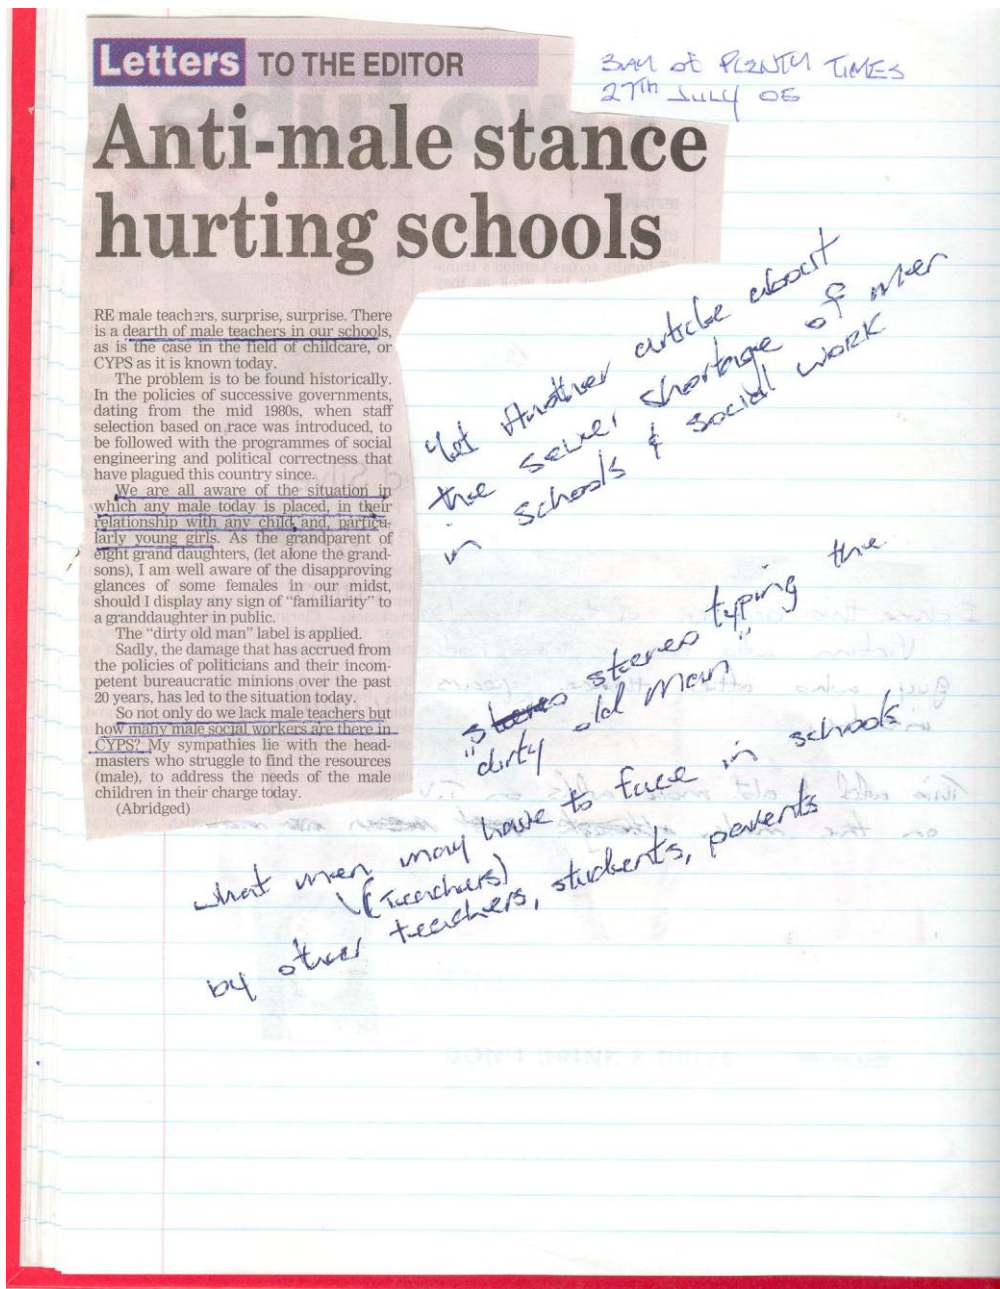 Letters TO THE EDITOR
Bay of PLENTY TIMES
27th July 05
Anti-male stance
hurting schools
RE male teachers, surprise, surprise. There
is a dearth of male teachers in our schools,
as is the case in the field of childcare, or
CYPS as it is known today.
The problem is to be found historically.
In the policies of successive governments,
dating from the mid 1980s, when staff
selection based on race was introduced, to
be followed with the programmes of social
engineering and political correctness that
have plagued this country since.
We are all aware of the situation in
which any male today is placed, in their
relationship with any child and, particu-
larly young girls. As the grandparent of
eight grand daughters, (let alone the grand-
sons), I am well aware of the disapproving
glances of some females in our midst,
should I display any sign of "familiarity" to
a granddaughter in public.
The "dirty old man" label is applied.
Sadly, the damage that has accrued from
the policies of politicians and their incom-
petent bureaucratic minions over the past
20 years, has led to the situation today.
So not only do we lack male teachers but
how many male social workers are there in
CYPS? My sympathies lie with the head-
masters who struggle to find the resources
(male), to address the needs of the male
children in their charge today.
(Abridged)
Yet Another article about
the sever shortage of men
in schools & social work
stereo stereo typing the
"dirty old man"
what men may have to face in schools
(Teachers)
by other teachers, students, parents